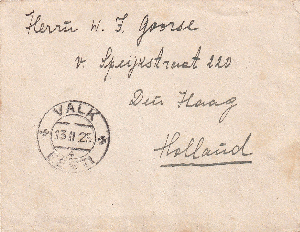 Herrn W. F. Goorse
v. Speijkstraat 220
Den Haag
Holland
VALK
13.II.25
EESTI